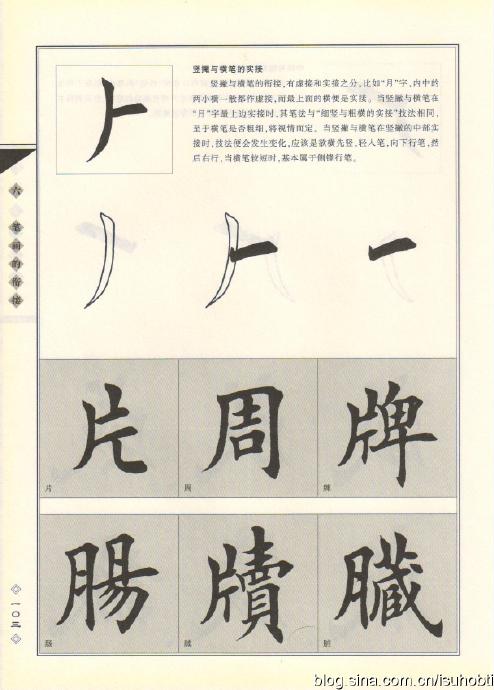 竖撇与横笔的实接
竖撇与横笔的衔接,有虚接和实接之分,比如“月”字,内中的
两小横一般都作虚接,而最上面的横便是实接。当竖撇与横笔在
“月”字最上边实接时,其笔法与“细竖与粗横的实接”技法相同,
至于横笔是否粗细,将视情而定。当竖撇与横笔在竖撇的中部实
接时,技法便会发生变化,应该是欲横先竖,轻入笔,向下行笔,然
后右行,当横笔较短时,基本属于侧锋行笔。
六
笔画的衔接
片 周 牌
片 周 牌
腸 牘 臓
肠 牍 脏
一〇三
blog.sina.com.cn/isuhobti